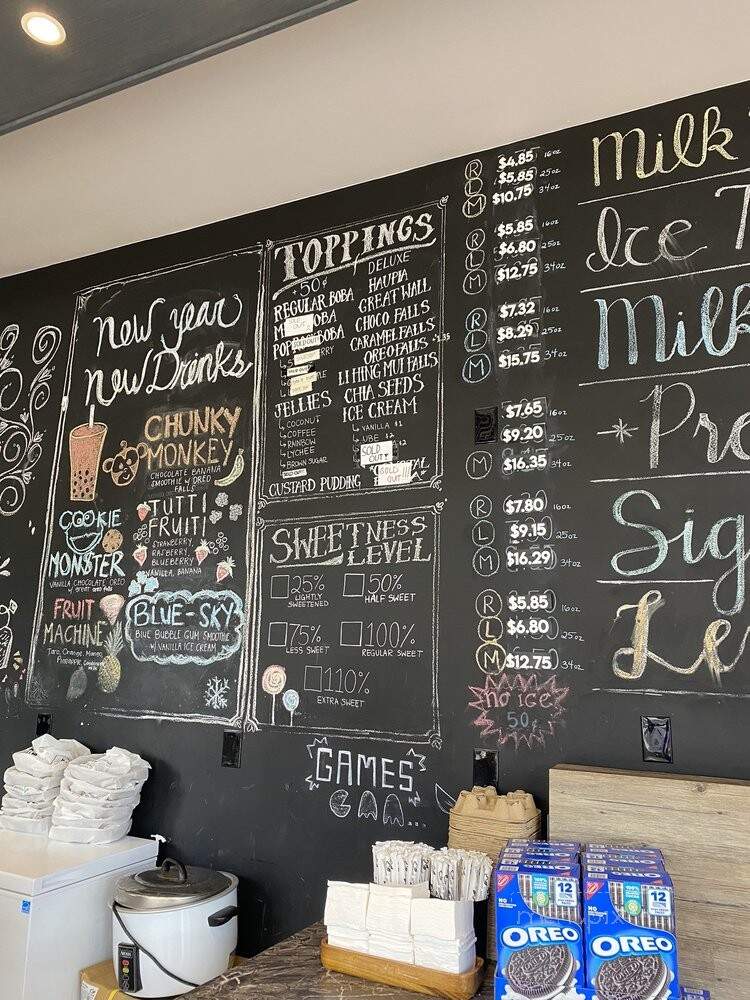 new year
new Drinks
CHUNKY
MONKEY
CHOCOLATE BANANA
SMOOTHIE W/ OREO
FALLS
COOKIE
MONSTER
VANILLA CHOCOLATE OREO
W/ GREAT OREO FALLS
TUTTI
FRUITI
STRAWBERRY,
RASPBERRY,
BLUEBERRY
VANILLA, BANANA
FRUIT
MACHINE
Taro, Orange, Mango,
BLUE-SKY
BLUE BUBBLE GUM SMOOTHIE
W/ VANILLA ICE CREAM
TOPPINGS
+50¢
REGULAR BOBA
OBA
BOBA
SOLD OUT
RRY
JELLIES
COCONUT
COFFEE
RAINBOW
LYCHEE
BROWN SUGAR
CUSTARD PUDDING
DELUXE
HAUPIA
GREAT WALL
CHOCO FALLS
CARAMEL FALLS
OREO FALLS
LI HING MUI FALLS
CHIA SEEDS
ICE CREAM
VANILLA $1
UBE
SOLD OUT
SOLD OUT!!!
SWEETNESS
LEVEL
25% LIGHTLY SWEETENED
50% HALF SWEET
75% LESS SWEET
100% REGULAR SWEET
110% EXTRA SWEET
GAMES
R $4.85 16oz
L $5.85 25oz
M $10.75 34oz
R $5.85 16oz
L $6.80 25oz
M $12.75 34oz
R $7.32 16oz
L $8.29 25oz
M $15.75 34oz
$7.65 16oz
$9.20 25oz
M $16.35 34oz
R $7.80 16oz
L $9.15 25oz
M $16.29 34oz
R $5.85 16oz
L $6.80 25oz
M $12.75 34oz
no ice
50¢
Milk
Ice T
Milk
Pro
Sig
Le
12
OREO
12
OREO